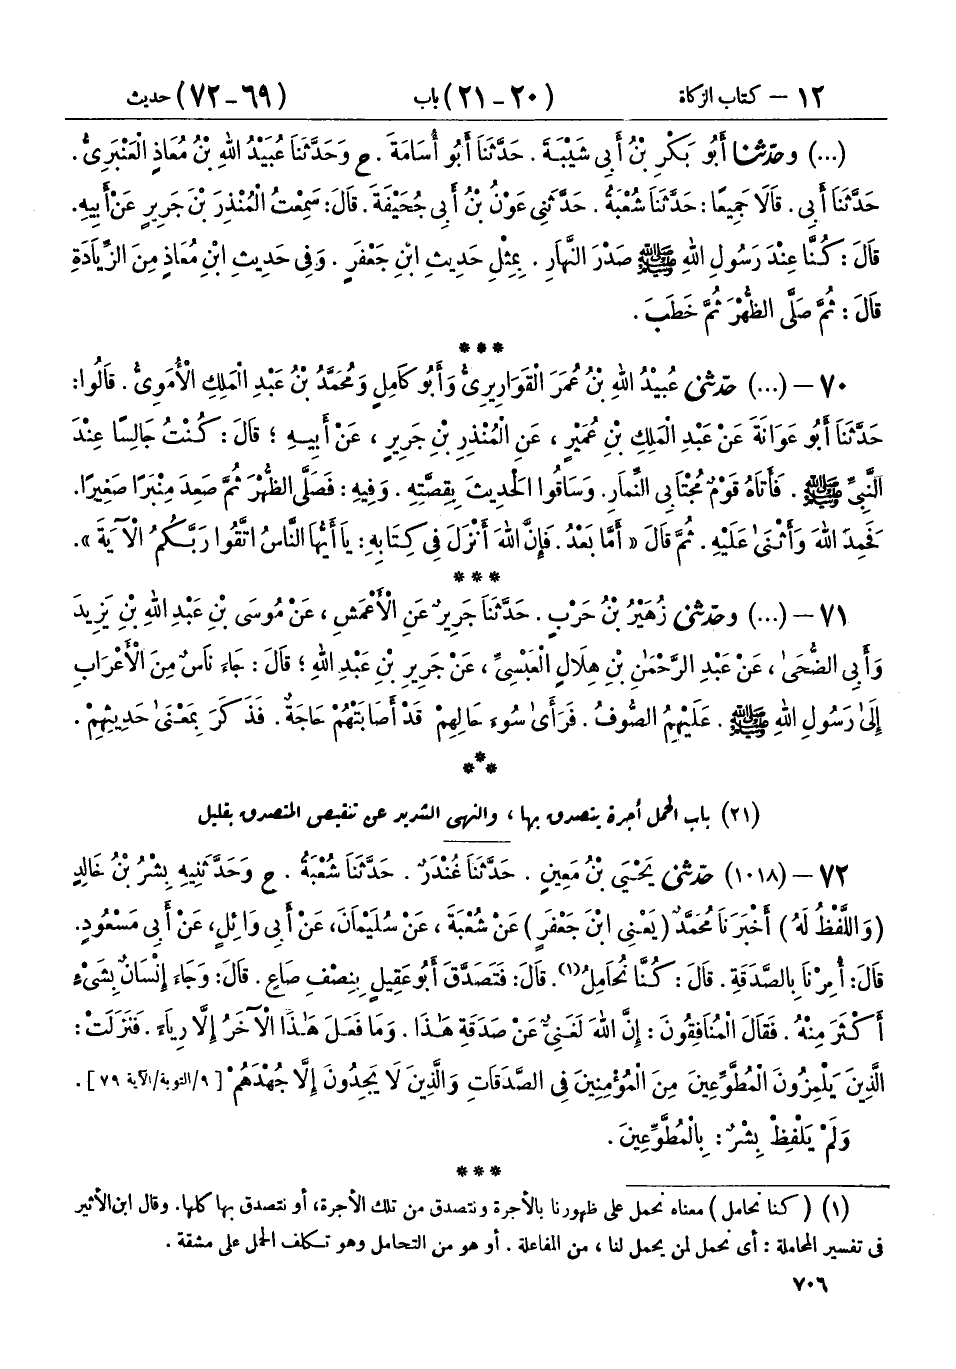 ١٢ – كتاب الزكاة (٢٠ – ٢١) باب (٦٩ – ٧٢) حديث
(...) وحَدَّثَنَا أَبُو بَكْرِ بْنُ أَبِي شَيْبَةَ . حَدَّثَنَا أَبُو أُسَامَةَ . ح وَحَدَّثَنَا عُبَيْدُ اللهِ بْنُ مُعَاذٍ الْعَنْبَرِىُّ .
حَدَّثَنَا أَبِي . قَالَا جَمِيعًا : حَدَّثَنَا شُعْبَةُ . حَدَّثَنِي عَوْنُ بْنُ أَبِي جُحَيْفَةَ . قَالَ: سَمِعْتُ الْمُنْذِرَ بْنَ جَرِيرٍ عَنْ أَبِيهِ.
قَالَ : كُنَّا عِنْدَ رَسُولِ اللهِ ﷺ صَدْرَ النَّهَارِ . بِمِثْلِ حَدِيثِ ابْنِ جَعْفَرٍ . وَفِي حَدِيثِ ابْنِ مُعَاذٍ مِنَ الزِّيَادَةِ
قَالَ : ثُمَّ صَلَّى الظُّهْرَ ثُمَّ خَطَبَ .
***
٧٠ – (...) حَدَّثَنِي عُبَيْدُ اللهِ بْنُ عُمَرَ الْقَوَارِيرِىُّ وَأَبُو كَامِلٍ وَمُحَمَّدُ بْنُ عَبْدِ الْمَلِكِ الْأُمَوِىُّ . قَالُوا:
حَدَّثَنَا أَبُو عَوَانَةَ عَنْ عَبْدِ الْمَلِكِ بْنِ عُمَيْرٍ ، عَنِ الْمُنْذِرِ بْنِ جَرِيرٍ ، عَنْ أَبِيهِ ؛ قَالَ : كُنْتُ جَالِسًا عِنْدَ
النَّبِيِّ ﷺ . فَأَتَاهُ قَوْمٌ مُجْتَابِي النِّمَارِ . وَسَاقُوا الْحَدِيثَ بِقِصَّتِهِ . وَفِيهِ : فَصَلَّى الظُّهْرَ ثُمَّ صَعِدَ مِنْبَرًا صَغِيرًا .
فَحَمِدَ اللهَ وَأَثْنَىٰ عَلَيْهِ . ثُمَّ قَالَ « أَمَّا بَعْدُ . فَإِنَّ اللهَ أَنْزَلَ فِي كِتَابِهِ : يَا أَيُّهَا النَّاسُ اتَّقُوا رَبَّكُمُ الْآيَةَ » .
***
٧١ – (...) وحَدَّثَنِي زُهَيْرُ بْنُ حَرْبٍ . حَدَّثَنَا جَرِيرٌ عَنِ الْأَعْمَشِ ، عَنْ مُوسَى بْنِ عَبْدِ اللهِ بْنِ يَزِيدَ
وَأَبِي الضُّحَىٰ ، عَنْ عَبْدِ الرَّحْمَٰنِ بْنِ هِلَالٍ الْعَبْسِيِّ ، عَنْ جَرِيرِ بْنِ عَبْدِ اللهِ ؛ قَالَ : جَاءَ نَاسٌ مِنَ الْأَعْرَابِ
إِلَىٰ رَسُولِ اللهِ ﷺ . عَلَيْهِمُ الصُّوفُ . فَرَأَىٰ سُوءَ حَالِهِمْ قَدْ أَصَابَتْهُمْ حَاجَةٌ . فَذَكَرَ بِمَعْنَىٰ حَدِيثِهِمْ .
***
(٢١) باب الحمل أجرة يتصدق بها ، والنهى الشديد عن تنقيص المتصدق بقليل
٧٢ – (١٠١٨) حَدَّثَنِي يَحْيَى بْنُ مَعِينٍ . حَدَّثَنَا غُنْدَرٌ . حَدَّثَنَا شُعْبَةُ . ح وَحَدَّثَنِيهِ بِشْرُ بْنُ خَالِدٍ
(وَاللَّفْظُ لَهُ) أَخْبَرَنَا مُحَمَّدٌ (يَعْنِي ابْنَ جَعْفَرٍ) عَنْ شُعْبَةَ ، عَنْ سُلَيْمَانَ، عَنْ أَبِي وَائِلٍ، عَنْ أَبِي مَسْعُودٍ.
قَالَ: أُمِرْنَا بِالصَّدَقَةِ . قَالَ : كُنَّا نُحَامِلُ(١). قَالَ: فَتَصَدَّقَ أَبُو عَقِيلٍ بِنِصْفِ صَاعٍ . قَالَ: وَجَاءَ إِنْسَانٌ بِشَىْءٍ
أَكْثَرَ مِنْهُ . فَقَالَ الْمُنَافِقُونَ : إِنَّ اللهَ لَغَنِيٌّ عَنْ صَدَقَةِ هَٰذَا . وَمَا فَعَلَ هَٰذَا الْآخَرُ إِلَّا رِيَاءً . فَنَزَلَتْ :
الَّذِينَ يَلْمِزُونَ الْمُطَّوِّعِينَ مِنَ الْمُؤْمِنِينَ فِي الصَّدَقَاتِ وَالَّذِينَ لَا يَجِدُونَ إِلَّا جُهْدَهُمْ [ ٩/التوبة/الآية ٧٩ ] .
وَلَمْ يَلْفِظْ بِشْرٌ : بِالْمُطَّوِّعِينَ .
***
(١) ( كنا نحامل ) معناه نحمل على ظهورنا بالأجرة ونتصدق من تلك الأجرة، أو نتصدق بها كلها. وقال ابن الأثير
فى تفسير المحاملة : أى نحمل لمن يحمل لنا ، من المفاعلة . أو هو من التحامل وهو تكلف الحمل على مشقة .
٧٠٦